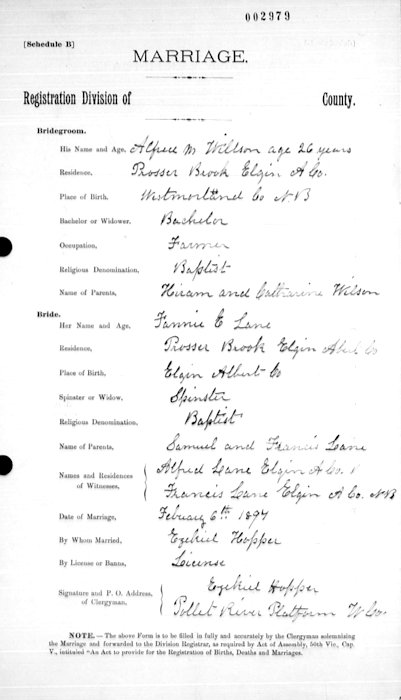 002979
[Schedule B]
MARRIAGE.
Registration Division of County.
Bridegroom.
His Name and Age, Alfred M Willson age 26 years
Residence, Prosser Brook Elgin A Co.
Place of Birth, Westmorland Co N B
Bachelor or Widower, Bachelor
Occupation, Farmer
Religious Denomination, Baptist
Name of Parents, Hiram and Catharine Wilson
Bride.
Her Name and Age, Fannie E Lane
Residence, Prosser Brook Elgin Co
Place of Birth, Elgin Albert Co
Spinster or Widow, Spinster
Religious Denomination, Baptist
Name of Parents, Samuel and Francis Lane
Names and Residences Alfred Lane Elgin A Co.
of Witnesses, Francis Lane Elgin A Co. N B
Date of Marriage, Febuary 6th 1897
By Whom Married, Ezekiel Hopper
By License or Banns, License
Signature and P. O. Address, Ezekiel Hopper
of Clergyman, Pollet River Platform W Co.
NOTE.—The above Form is to be filled in fully and accurately by the Clergyman solemnizing
the Marriage and forwarded to the Division Registrar, as required by Act of Assembly, 50th Vic., Cap.
V., intituled "An Act to provide for the Registration of Births, Deaths and Marriages.